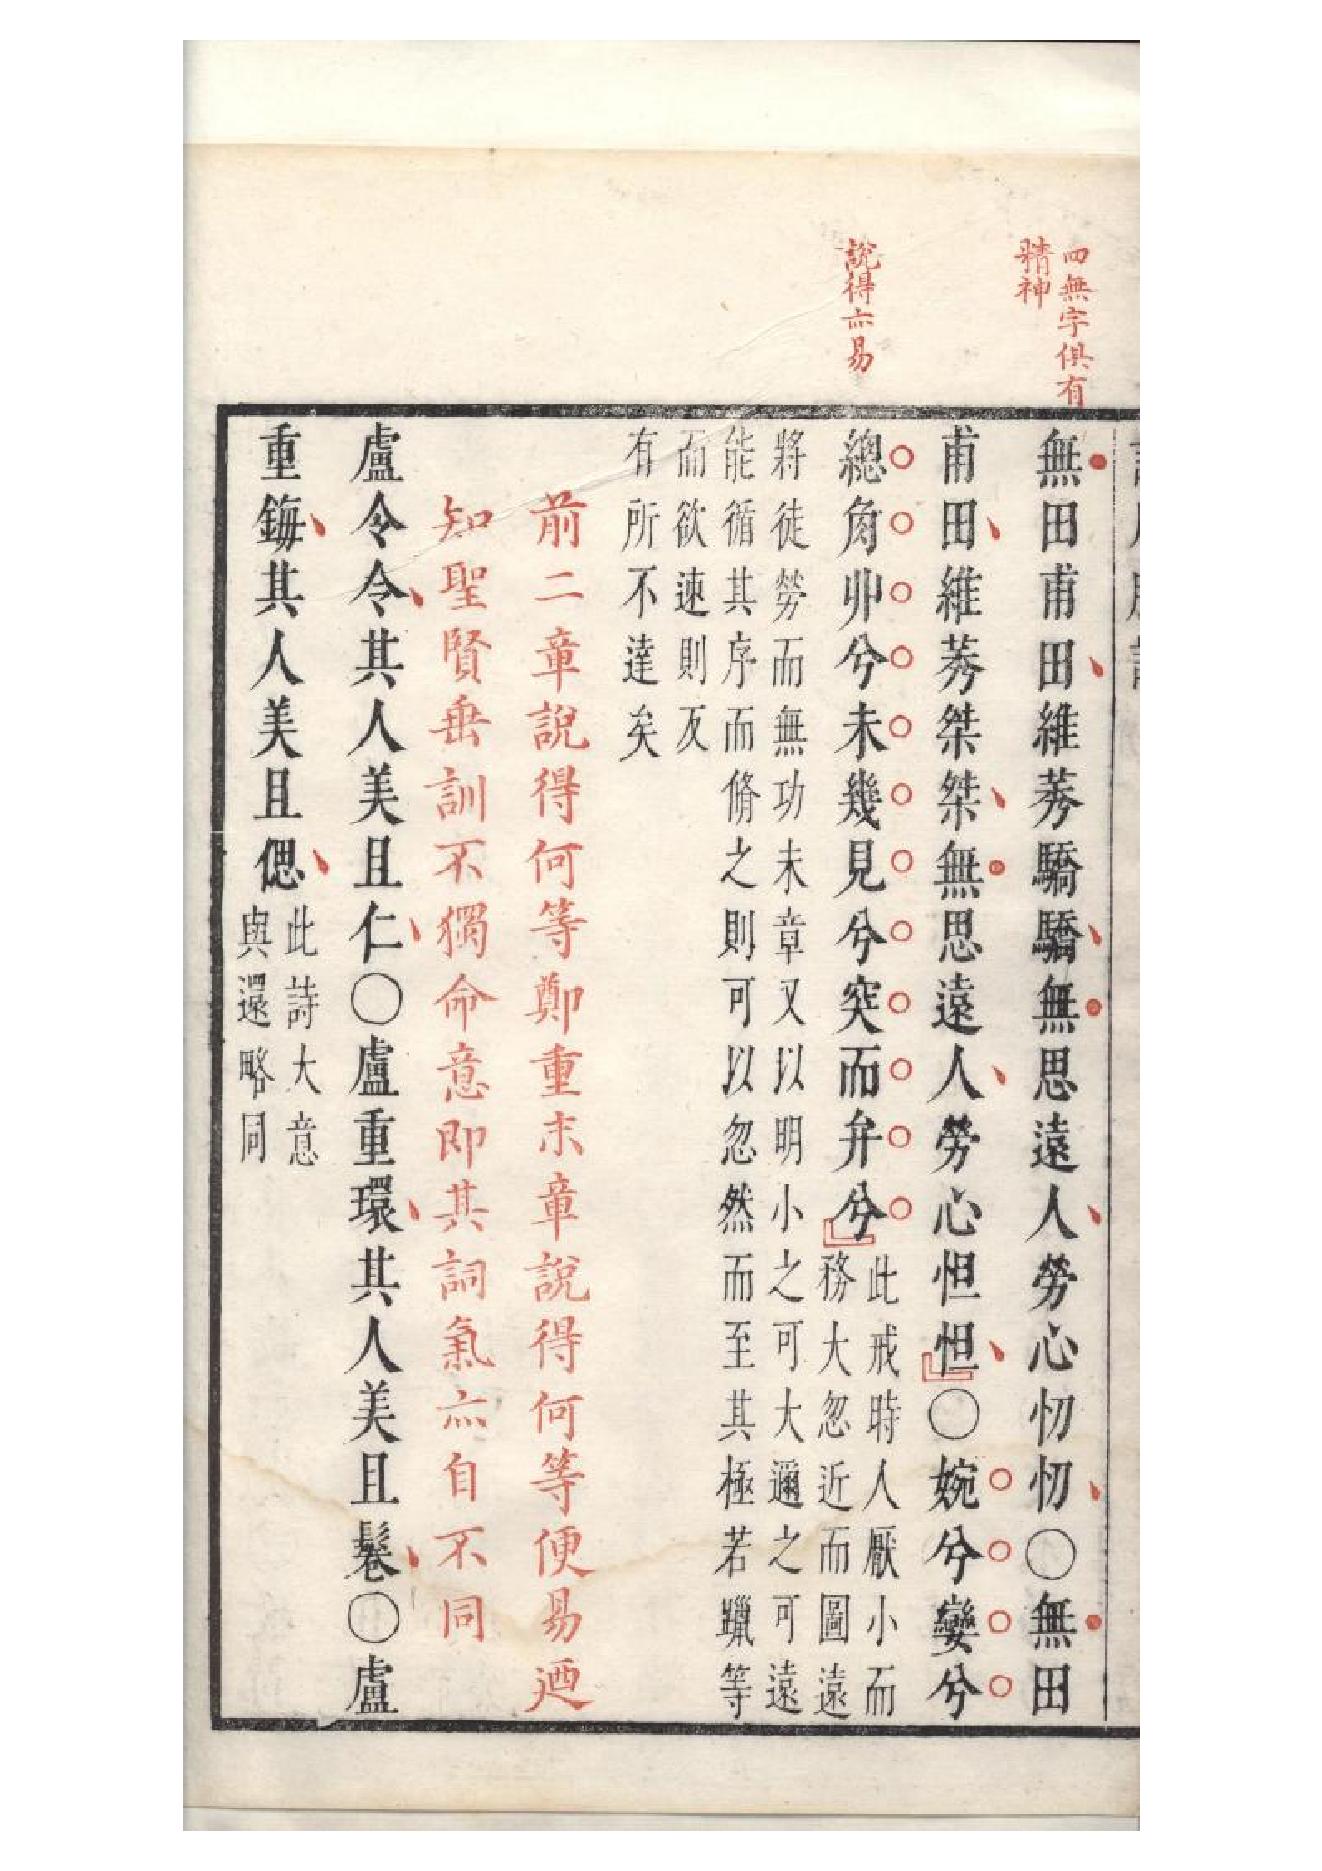 四無字俱有
精神
說得亦易
無田甫田維莠驕驕無思遠人勞心忉忉○無田
甫田維莠桀桀無思遠人勞心怛怛○婉兮孌兮
總角丱兮未幾見兮突而弁兮
此戒時人厭小而
務大忽近而圖遠
將徒勞而無功未章又以明小之可大邇之可遠
能循其序而脩之則可以忽然而至其極若躐等
而欲速則反
有所不達矣
前二章說得何等鄭重末章說得何等便易迺
知聖賢垂訓不獨命意即其詞氣亦自不同
盧令令其人美且仁○盧重環其人美且鬈○盧
重鋂其人美且偲
此詩大意
與還略同